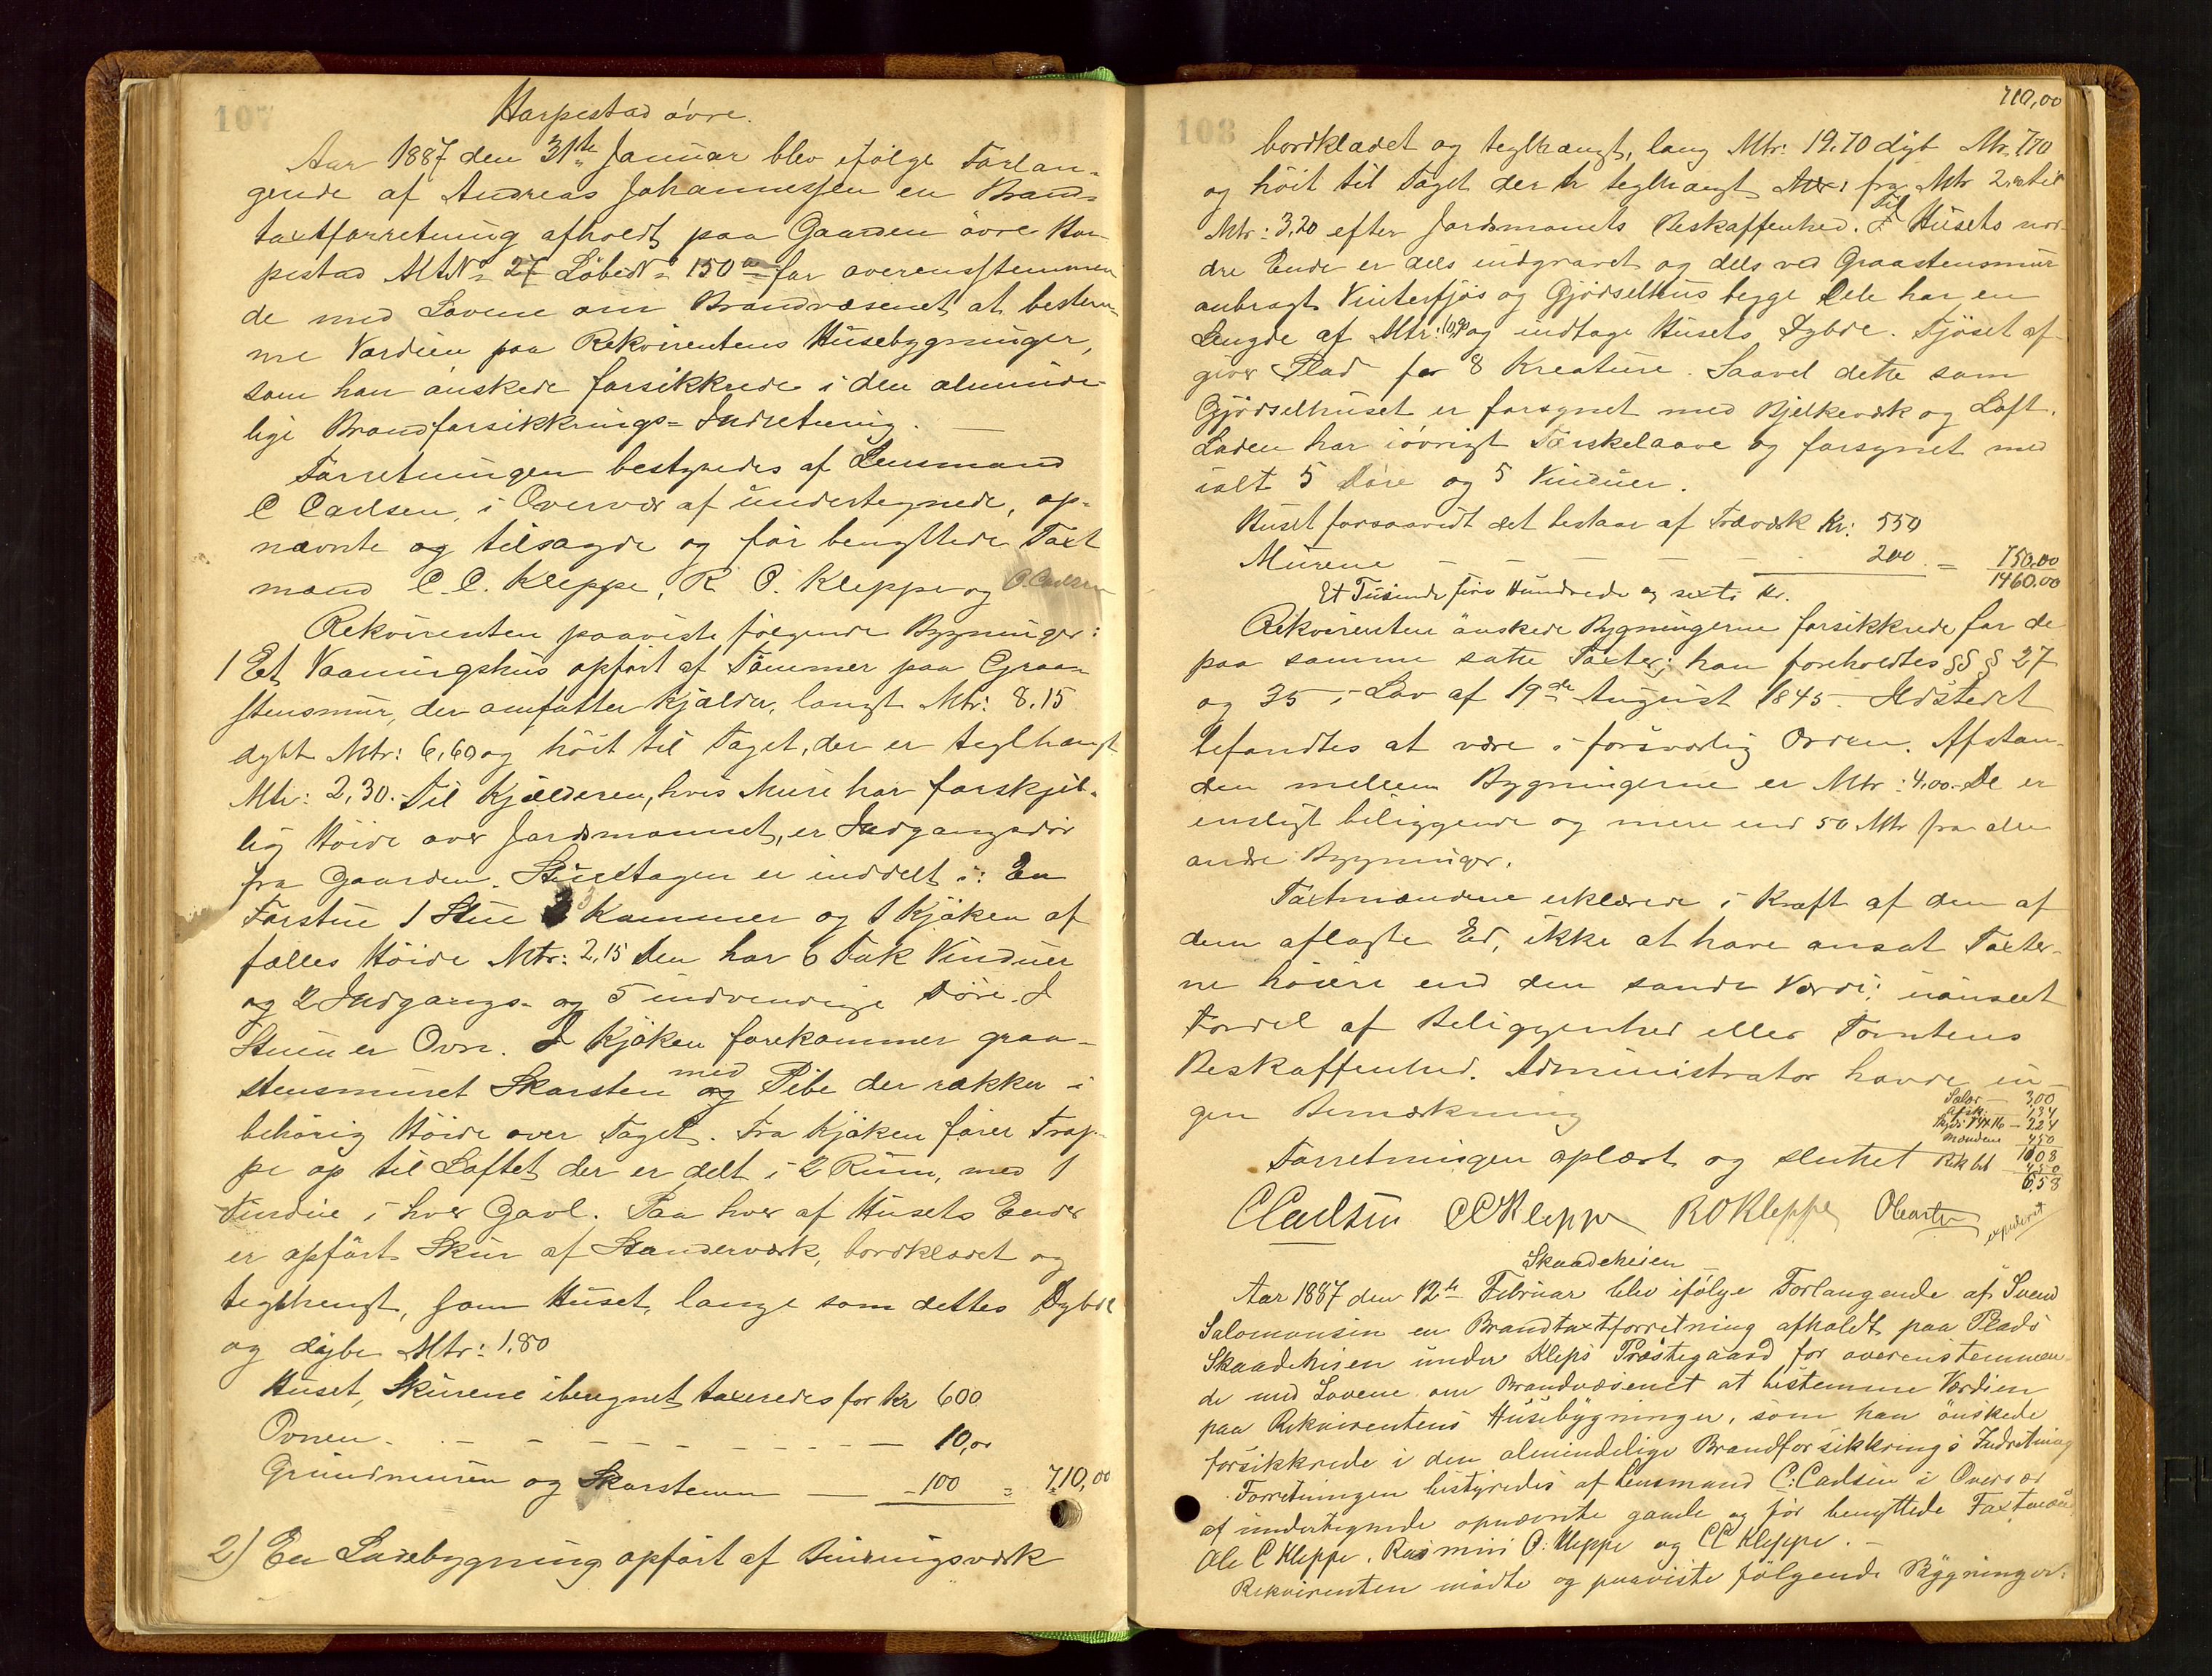 107
Harpestad övre.
Aar 1887 den 31te Januar blev ifölge Forlan-
gende af Andreas Johannessen en Brand-
taxtforretning afholdt paa Gaarden övre Har-
pestad Mt No 27 Löbe No 150a for overensstemmen
de med Lovene om Brandvæsenet at bestem-
me Værdien paa Rekvirentens Husebygninger,
som han önskede forsikkrede i den alminde-
lige Brandforsikkrings-Indretning. —
Forretningen bestyredes af Lensmand
C Carlsen, i Overvær af undertegnede, op-
nævnte og tilsagde og för benyttede Taxt
mænd C. C. Kleppe, R. O. Kleppe og O. Carlsen
Rekvirenten paaviste følgende Bygninger:
1 Et Vaaningshus opfört af Tømmer paa Graa-
stensmur, der omfatter Kjælder, langt Mtr: 8,15
dybt Mtr: 6,60 og höit til Taget, der er teglhængt
Mtr: 2,30. Til Kjælderen, hvis Mure har forskjel-
lig Höide over Jordsmonnet, er Indgangsdör
fra Gaarden. Stuetagen er inddelt i: En
Forstue 1 Stue 3 Kammer og 1 Kjöken af
fælles Höide Mtr: 2,15 Den har 6 Fak Vinduer
og 2 Indgangs- og 5 indvendige Döre. I
Stuen er Ovn. I Kjöken forekommer graa-
stensmuret Skorsten med og Pibe der rækker i
behörig Höide over Taget. Fra Kjöken förer Trap-
pe op til Loftet der er delt i 2 Rum, med 1
Vindue i hver Gavl. Paa hver af Husets Ender
er opfört Skur af Standerværk, bordklædet og
teglhengt, som Huset, lange som dettes Dybde
og dybe Mtr: 1,80
Huset, Skurene iberegnet taxeredes for Kr 600
Ovnen - - - - - - - - - - 10,00
Grundmuren og Skorstenen — - 100 = 710,00
2) En Ladebygning opfört af Bindingsværk
108
710,00
bordklædet og teglhængt, lang Mtr: 19.70 dyb Mtr. 7,70
og höit til Taget der er teglhængt Mtr: fra Mtr 2, til
Mtr: 3,20 efter Jordsmonets Beskaffenhed. Til Husets nor-
dre Ende er dels indgravet og dels ved Graastensmur
anbragt Vinterfjös og Gjödselhus begge Dele har en
Længde af Mtr: 10,90 og indtage Husets Dybde. Fjöset af-
giver Plad for 8 Kreature. Saavel dette som
Gjödselhuset er forsynet med Bjelkevæk og Loft.
Laden har iövrigt Tærskelaave og forsynet med
ialt 5 Döre og 5 Vinduer.
Huset forsaavidt det bestaar af Trævæk Kr: 550
Murene - - - - - 200 = 750,00
1460.00
Et Tusinde fire Hundrede og sexti Kr.
Rekvirenten önskede Bygningerne forsikkrede for de
paa samme satte Taxter; han foreholdtes §§ § 27
og 35 i Lov af 19de August 1845. Ildstedet
befandtes at være i forsvarlig Orden. Afstan-
den mellem Bygningerne er Mtr: 4,00. De er
ensligt beliggende og mere end 50 Mtr fra alle
andre Bygninger.
Taxtmændene erklærede i Kraft af den af
dem aflagte Ed, ikke at have ansat Taxter-
ne höiere end den sande Værdi; uanseet
Fordel af Beliggenhed eller Tomtens
Beskaffenhed. Administrator havde in-
gen Bemærkning
Salær - 3,00
Afsk. - 1,34
Skyds 14x16 - 2,24
Mændene 4,50
Forretningen oplæst og sluttet Rek bet 11,08
4,50
6,58
C Carlsen CC Kleppe R O Kleppe O Carlsen
expederet
Skaadeheien
Aar 1887 den 12te Februar blev ifölge Forlangende af Svend
Salomonsen en Brandtaxtforretning afholdt paa Plads
Skaadeheien under Kleps Præstegaard for overenstemmen-
de med Lovene om Brandvæsenet at bestemme Værdien
paa Rekvirentens Husebygninger, som han önskede
forsikkrede i den almindelige Brandforsikkrings Indretning
Forretningen bestyredes af Lensmand C. Carlsen i Overvær
af undertegnede opnævnte gamle og för benyttede Taxtmænd
Ole C Kleppe, Rasmus O. Kleppe og CC Kleppe. -
Rekvirenten mödte og paaviste fölgende Bygninger: